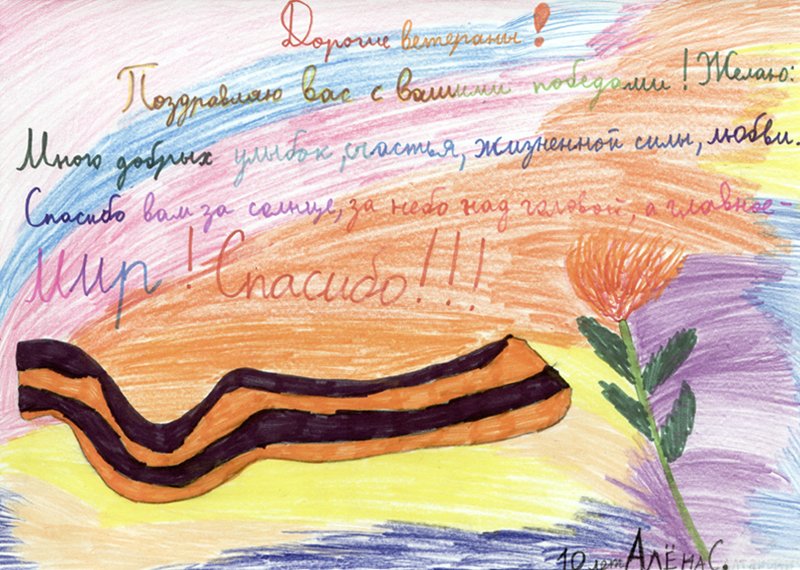 Дорогие ветераны!
Поздравляю вас с вашими победами! Желаю:
Много добрых улыбок, счастья, жизненной силы, любви.
Спасибо вам за солнце, за небо над головой, а главное-
Мир! Спасибо!!!
10 лет АЛЁНА С.